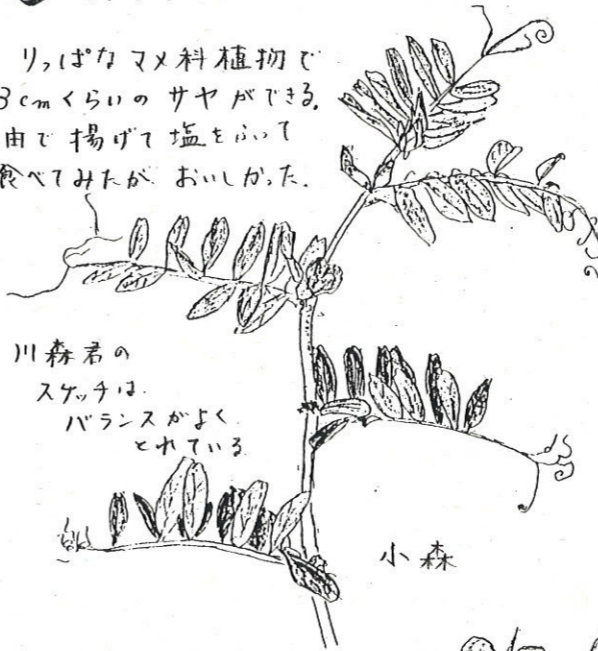 りっぱなマメ科植物で
3cmくらいのサヤができる。
油で揚げて塩をふって
食べてみたが、おいしかった。
川森君の
スケッチは、
バランスがよく
とれている
小森